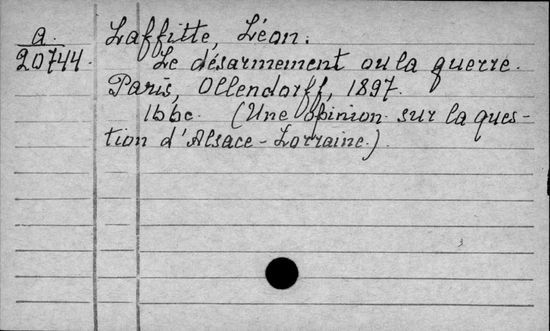 a. Laffitte, Léon.
20744. Le désarmement ou la guerre.
Paris, Ollendorff, 1897.
166c. (Une opinion sur la ques-
tion d'Alsace-Lorraine.)